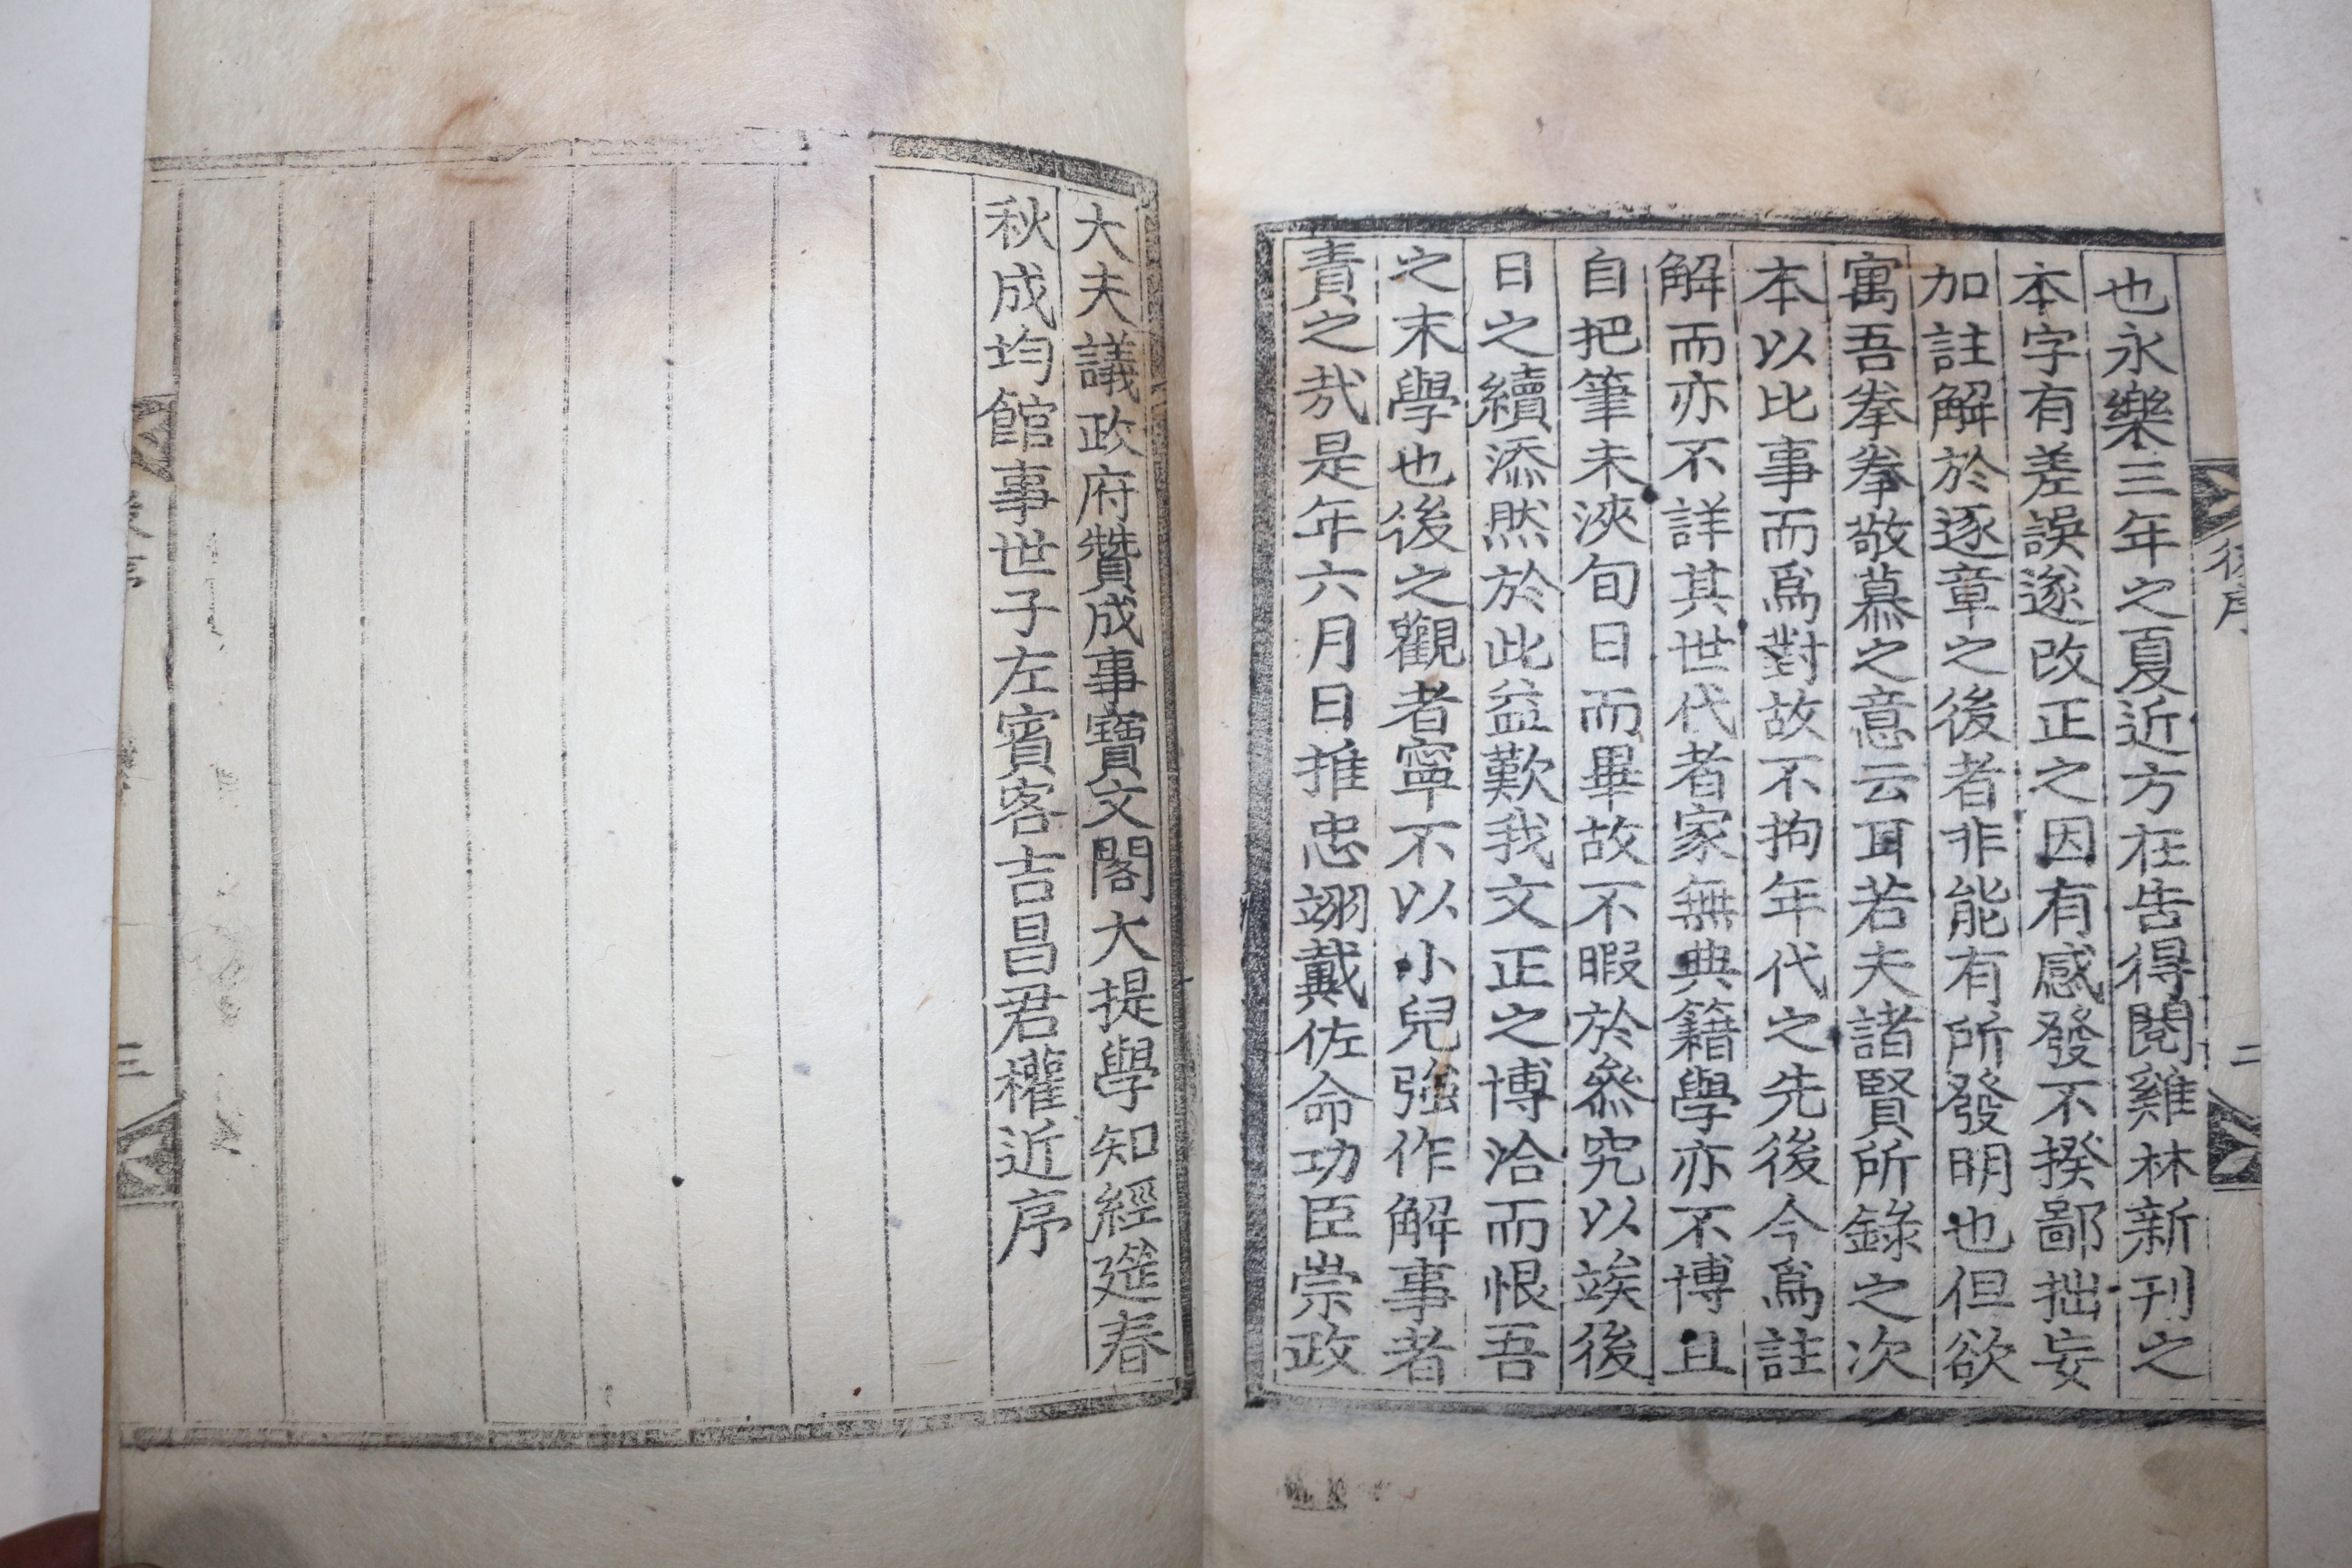 也永樂三年之夏近方在告得閱雞林新刊之
本字有差誤遂改正之因有感發不揆鄙拙妄
加註解於逐章之後者非能有所發明也但欲
寓吾拳拳敬慕之意云耳若夫諸賢所錄之次
本以比事而爲對故不拘年代之先後今爲註
解而亦不詳其世代者家無典籍學亦不博且
自把筆未浹旬日而畢故不暇於叅究以竢後
日之續添然於此益歎我文正之博洽而恨吾
之末學也後之觀者寧不以小兒強作解事者
責之哉是年六月日推忠翊戴佐命功臣崇政
後序
二
大夫議政府贊成事寶文閣大提學知經筵春
秋成均館事世子左賓客吉昌君權近序
三